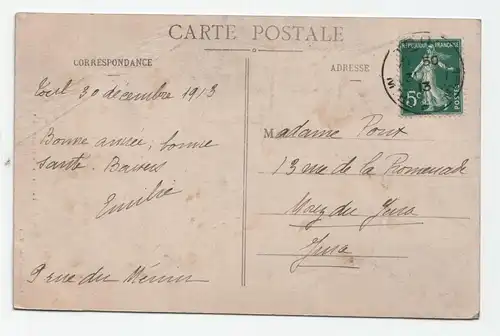 CARTE POSTALE
CORRESPONDANCE
ADRESSE
Toul 30 décembre 1913
Bonne année, bonne
santé. Baisers
Emilie
9 rue du Menin
Madame Pont
13 rue de la Promenade
Morez du Jura
Jura
REPUBLIQUE FRANÇAISE
5c
POSTES
30
13